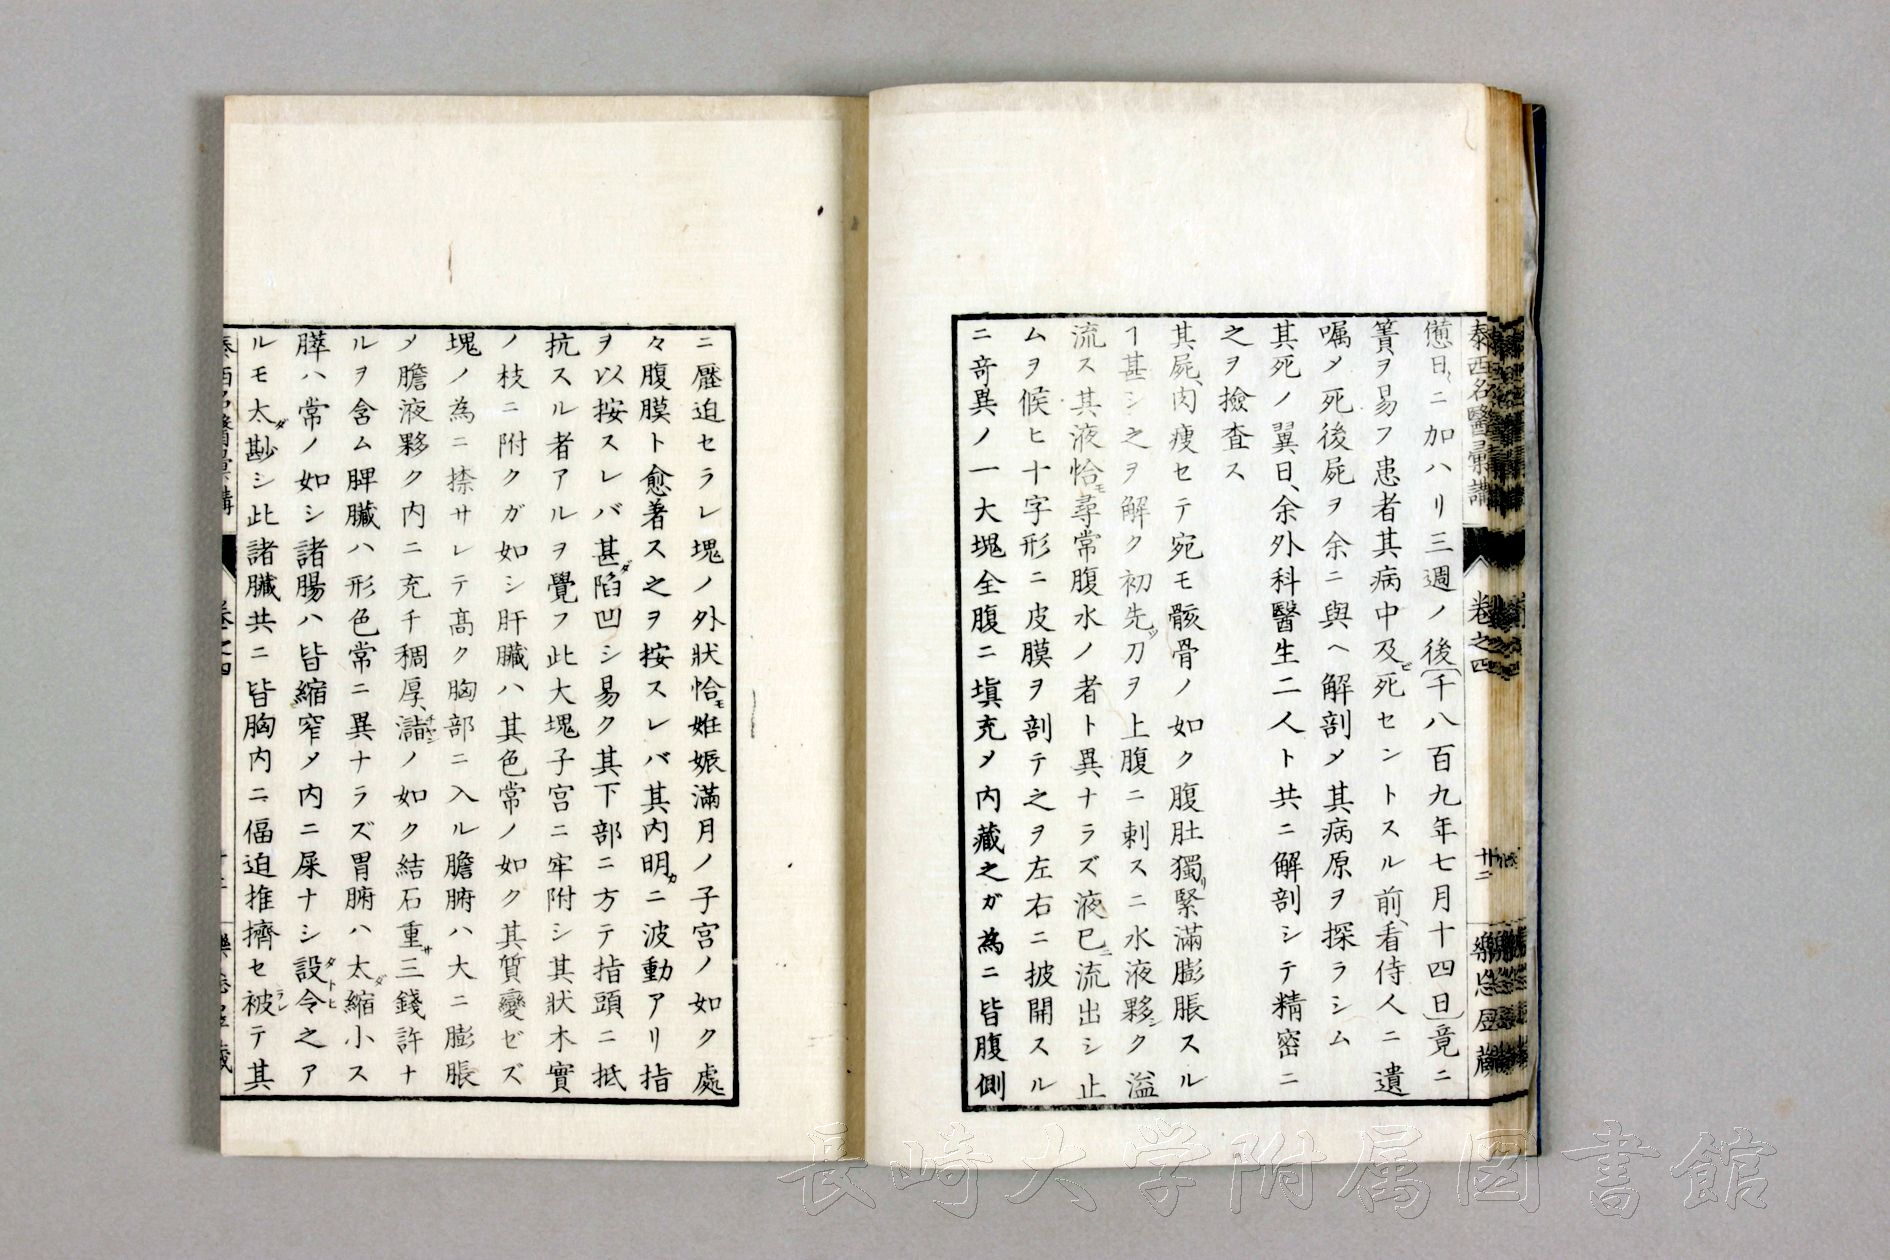 泰西名醫彙講
卷之四
廿二
憊日ニ加ハリ三週ノ後(千八百九年七月十四日)竟ニ
簀ヲ易フ患者其病中及ビ死セントスル前、看侍人ニ遺
嘱メ死後屍ヲ余ニ與ヘ解剖メ其病原ヲ探ラシム
其死ノ翼日、余外科醫生二人ト共ニ解剖シテ精密ニ
之ヲ撿査ス
其屍、肉瘦セテ宛モ骸骨ノ如ク腹肚獨リ緊滿膨脹スル
ヿ甚シ之ヲ解ク初先ヅ刀ヲ上腹ニ刺スニ水液夥シク溢
流ス其液恰モ尋常腹水ノ者ト異ナラズ液已ニ流出シ止
ムヲ候ヒ十字形ニ皮膜ヲ剖テ之ヲ左右ニ披開スル
ニ奇異ノ一大塊全腹ニ塡充メ内藏之ガ為ニ皆腹側
ニ壓迫セラレ塊ノ外狀恰モ姙娠滿月ノ子宮ノ如ク處
々腹膜ト愈着ス之ヲ按スレバ其内明カニ波動アリ指
ヲ以按スレバ甚ダ陷凹シ易ク其下部ニ方テ指頭ニ抵
抗スル者アルヲ覺フ此大塊子宮ニ牢附シ其狀木實
ノ枝ニ附クガ如シ肝臟ハ其色常ノ如ク其質變ゼズ
塊ノ為ニ搸サレテ髙ク胸部ニ入ル膽腑ハ大ニ膨脹
メ膽液夥ク内ニ充チ稠厚、ノ如ク結石重サ三錢許ナ
ルヲ含ム脾臟ハ形色常ニ異ナラズ胃腑ハ太ダ縮小ス
膵ハ常ノ如シ諸腸ハ皆縮窄メ内ニ屎ナシ設令之ア
ルモ太ダ尠シ此諸臟共ニ皆胸内ニ偪迫推擠セ被テ其
卷之四
長崎大学附属図書館